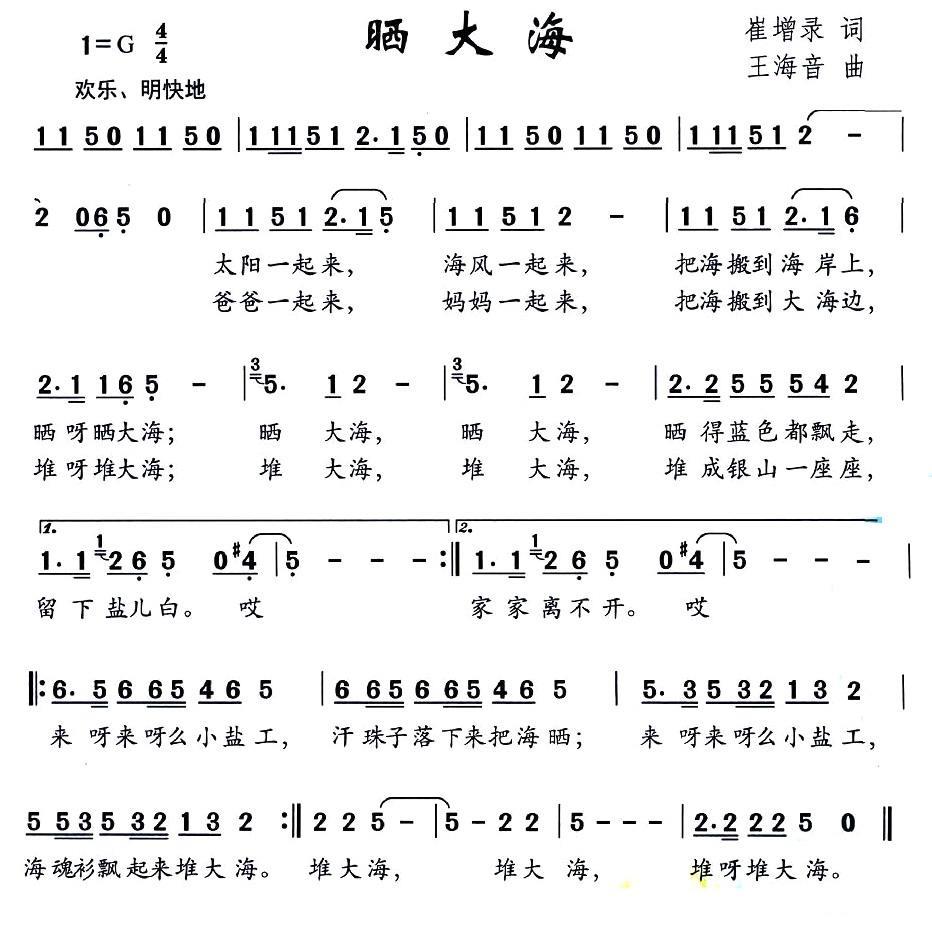 晒大海
1=G 4/4
崔增录 词
王海音 曲
欢乐、明快地
1 1 5 0 1 1 5 0 | 1 1 1 5 1 2· 1 5 0 | 1 1 5 0 1 1 5 0 | 1 1 1 5 1 2 - |
2 0 6 5 0 | 1 1 5 1 2· 1 5 | 1 1 5 1 2 - | 1 1 5 1 2· 1 6 |
太阳一起来， 海风一起来， 把海搬到海岸上，
爸爸一起来， 妈妈一起来， 把海搬到大海边，
2· 1 1 6 5 - | 3 5· 1 2 - | 3 5· 1 2 - | 2· 2 5 5 5 4 2 |
晒呀晒大海； 晒大海， 晒大海， 晒得蓝色都飘走，
堆呀堆大海； 堆大海， 堆大海， 堆成银山一座座，
1. 2.
1· 1 1 2 6 5 0 #4 | 5 - - - :‖ 1· 1 1 2 6 5 0 #4 | 5 - - - |
留下盐儿白。 哎 家家离不开。 哎
‖: 6· 5 6 6 5 4 6 5 | 6 6 6 5 6 6 5 4 6 5 | 5· 3 5 3 2 1 3 2 |
来呀来呀么小盐工， 汗珠子落下来把海晒； 来呀来呀么小盐工，
5 5 3 5 3 2 1 3 2 :‖ 2 2 5 - | 5 - 2 2 | 5 - - - | 2· 2 2 2 5 0 ‖
海魂衫飘起来堆大海。 堆大海， 堆大海， 堆呀堆大海。